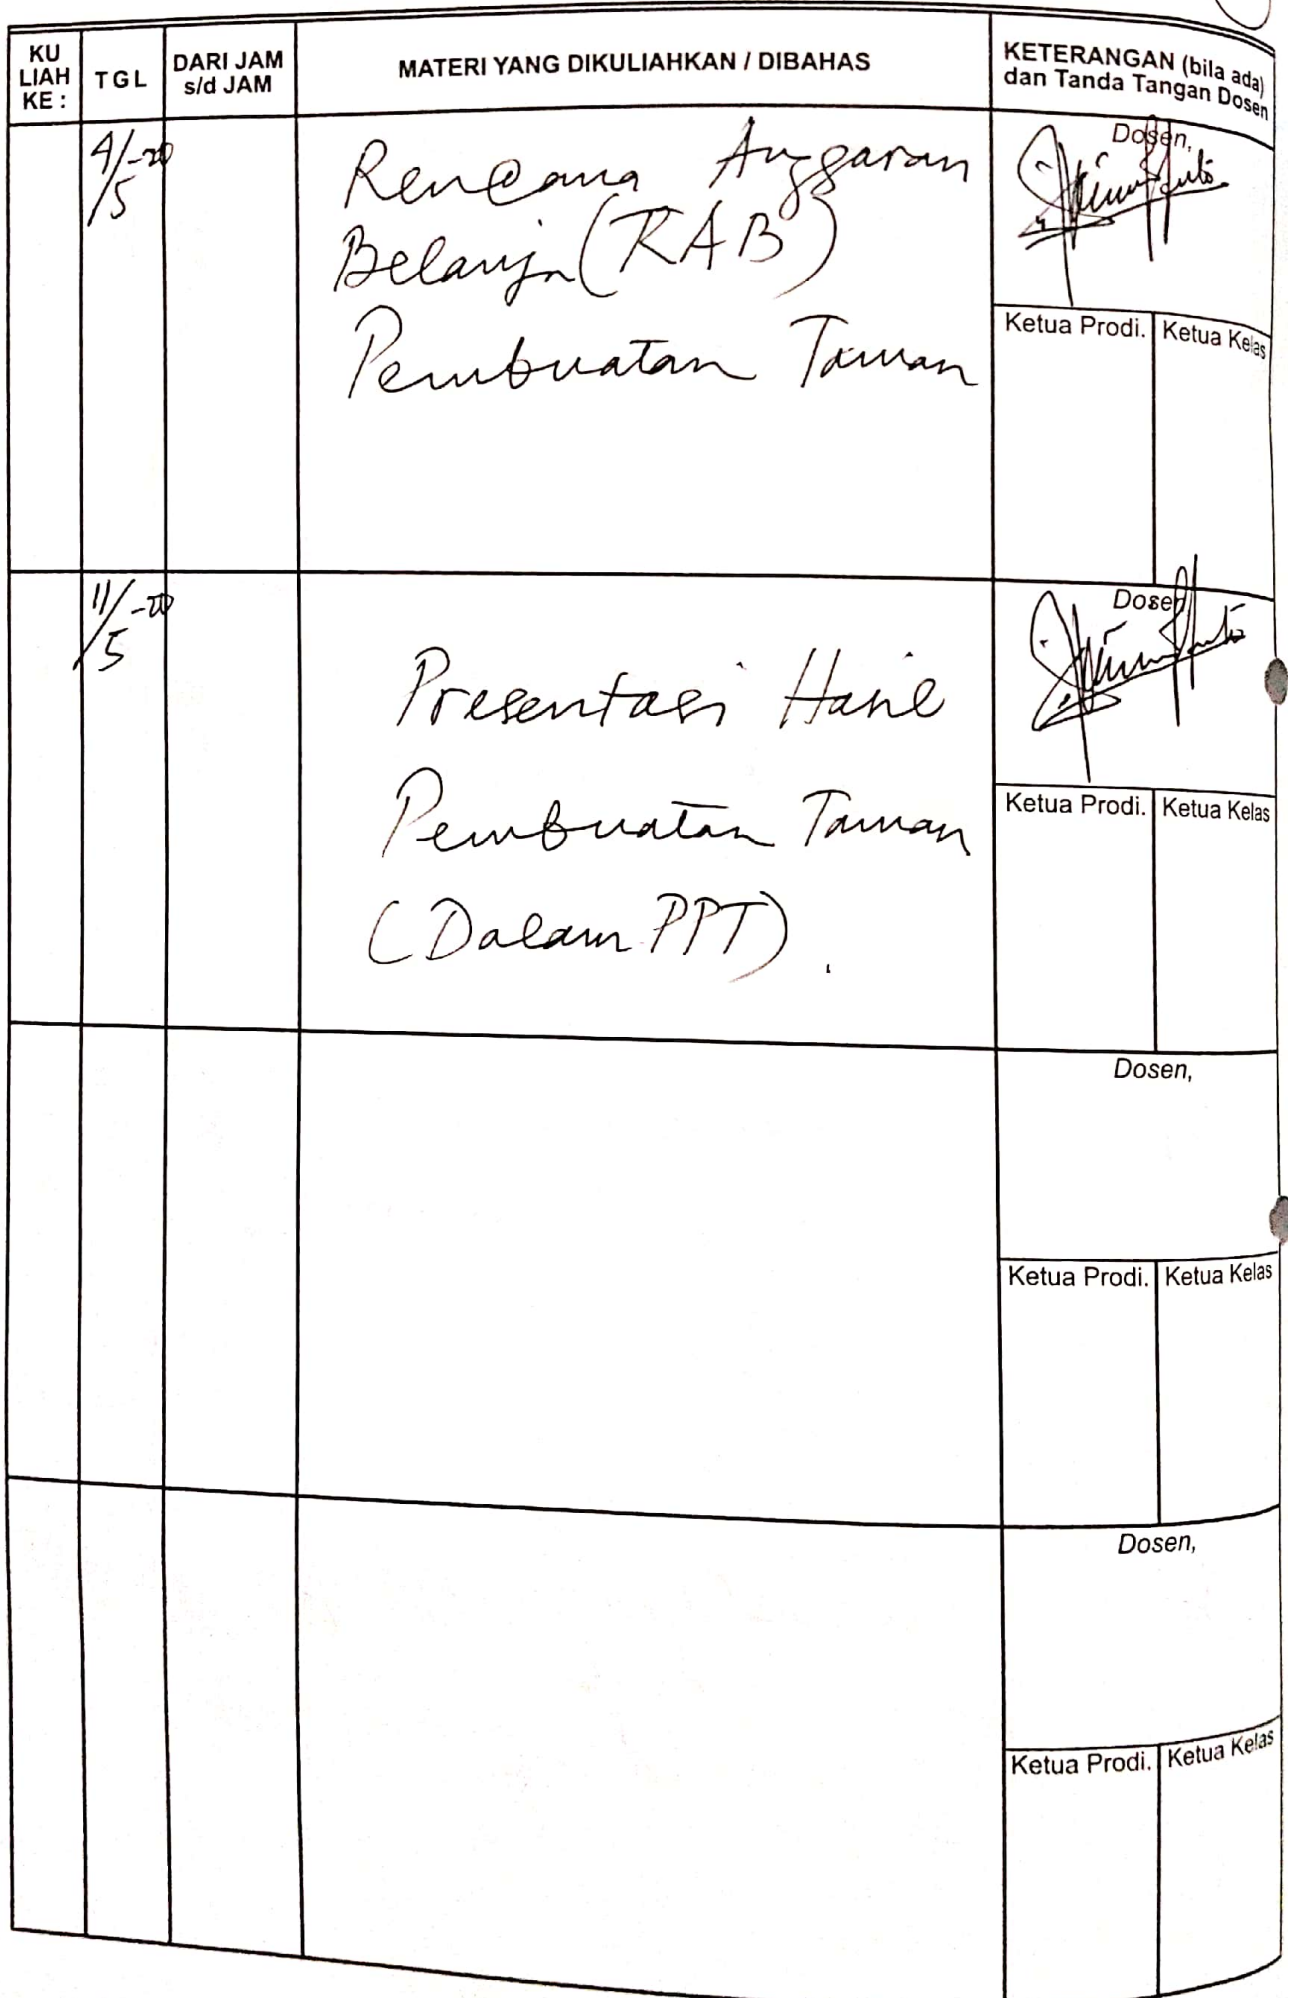 KU LIAH KE :
TGL
DARI JAM s/d JAM
MATERI YANG DIKULIAHKAN / DIBAHAS
KETERANGAN (bila ada) dan Tanda Tangan Dosen
4/5-20
Rencana Anggaran
Belanja (RAB)
Pembuatan Taman
Dosen,
Ketua Prodi.
Ketua Kelas
11/5-20
Presentasi Hasil
Pembuatan Taman
(Dalam PPT).
Dosen,
Ketua Prodi.
Ketua Kelas
Dosen,
Ketua Prodi.
Ketua Kelas
Dosen,
Ketua Prodi.
Ketua Kelas